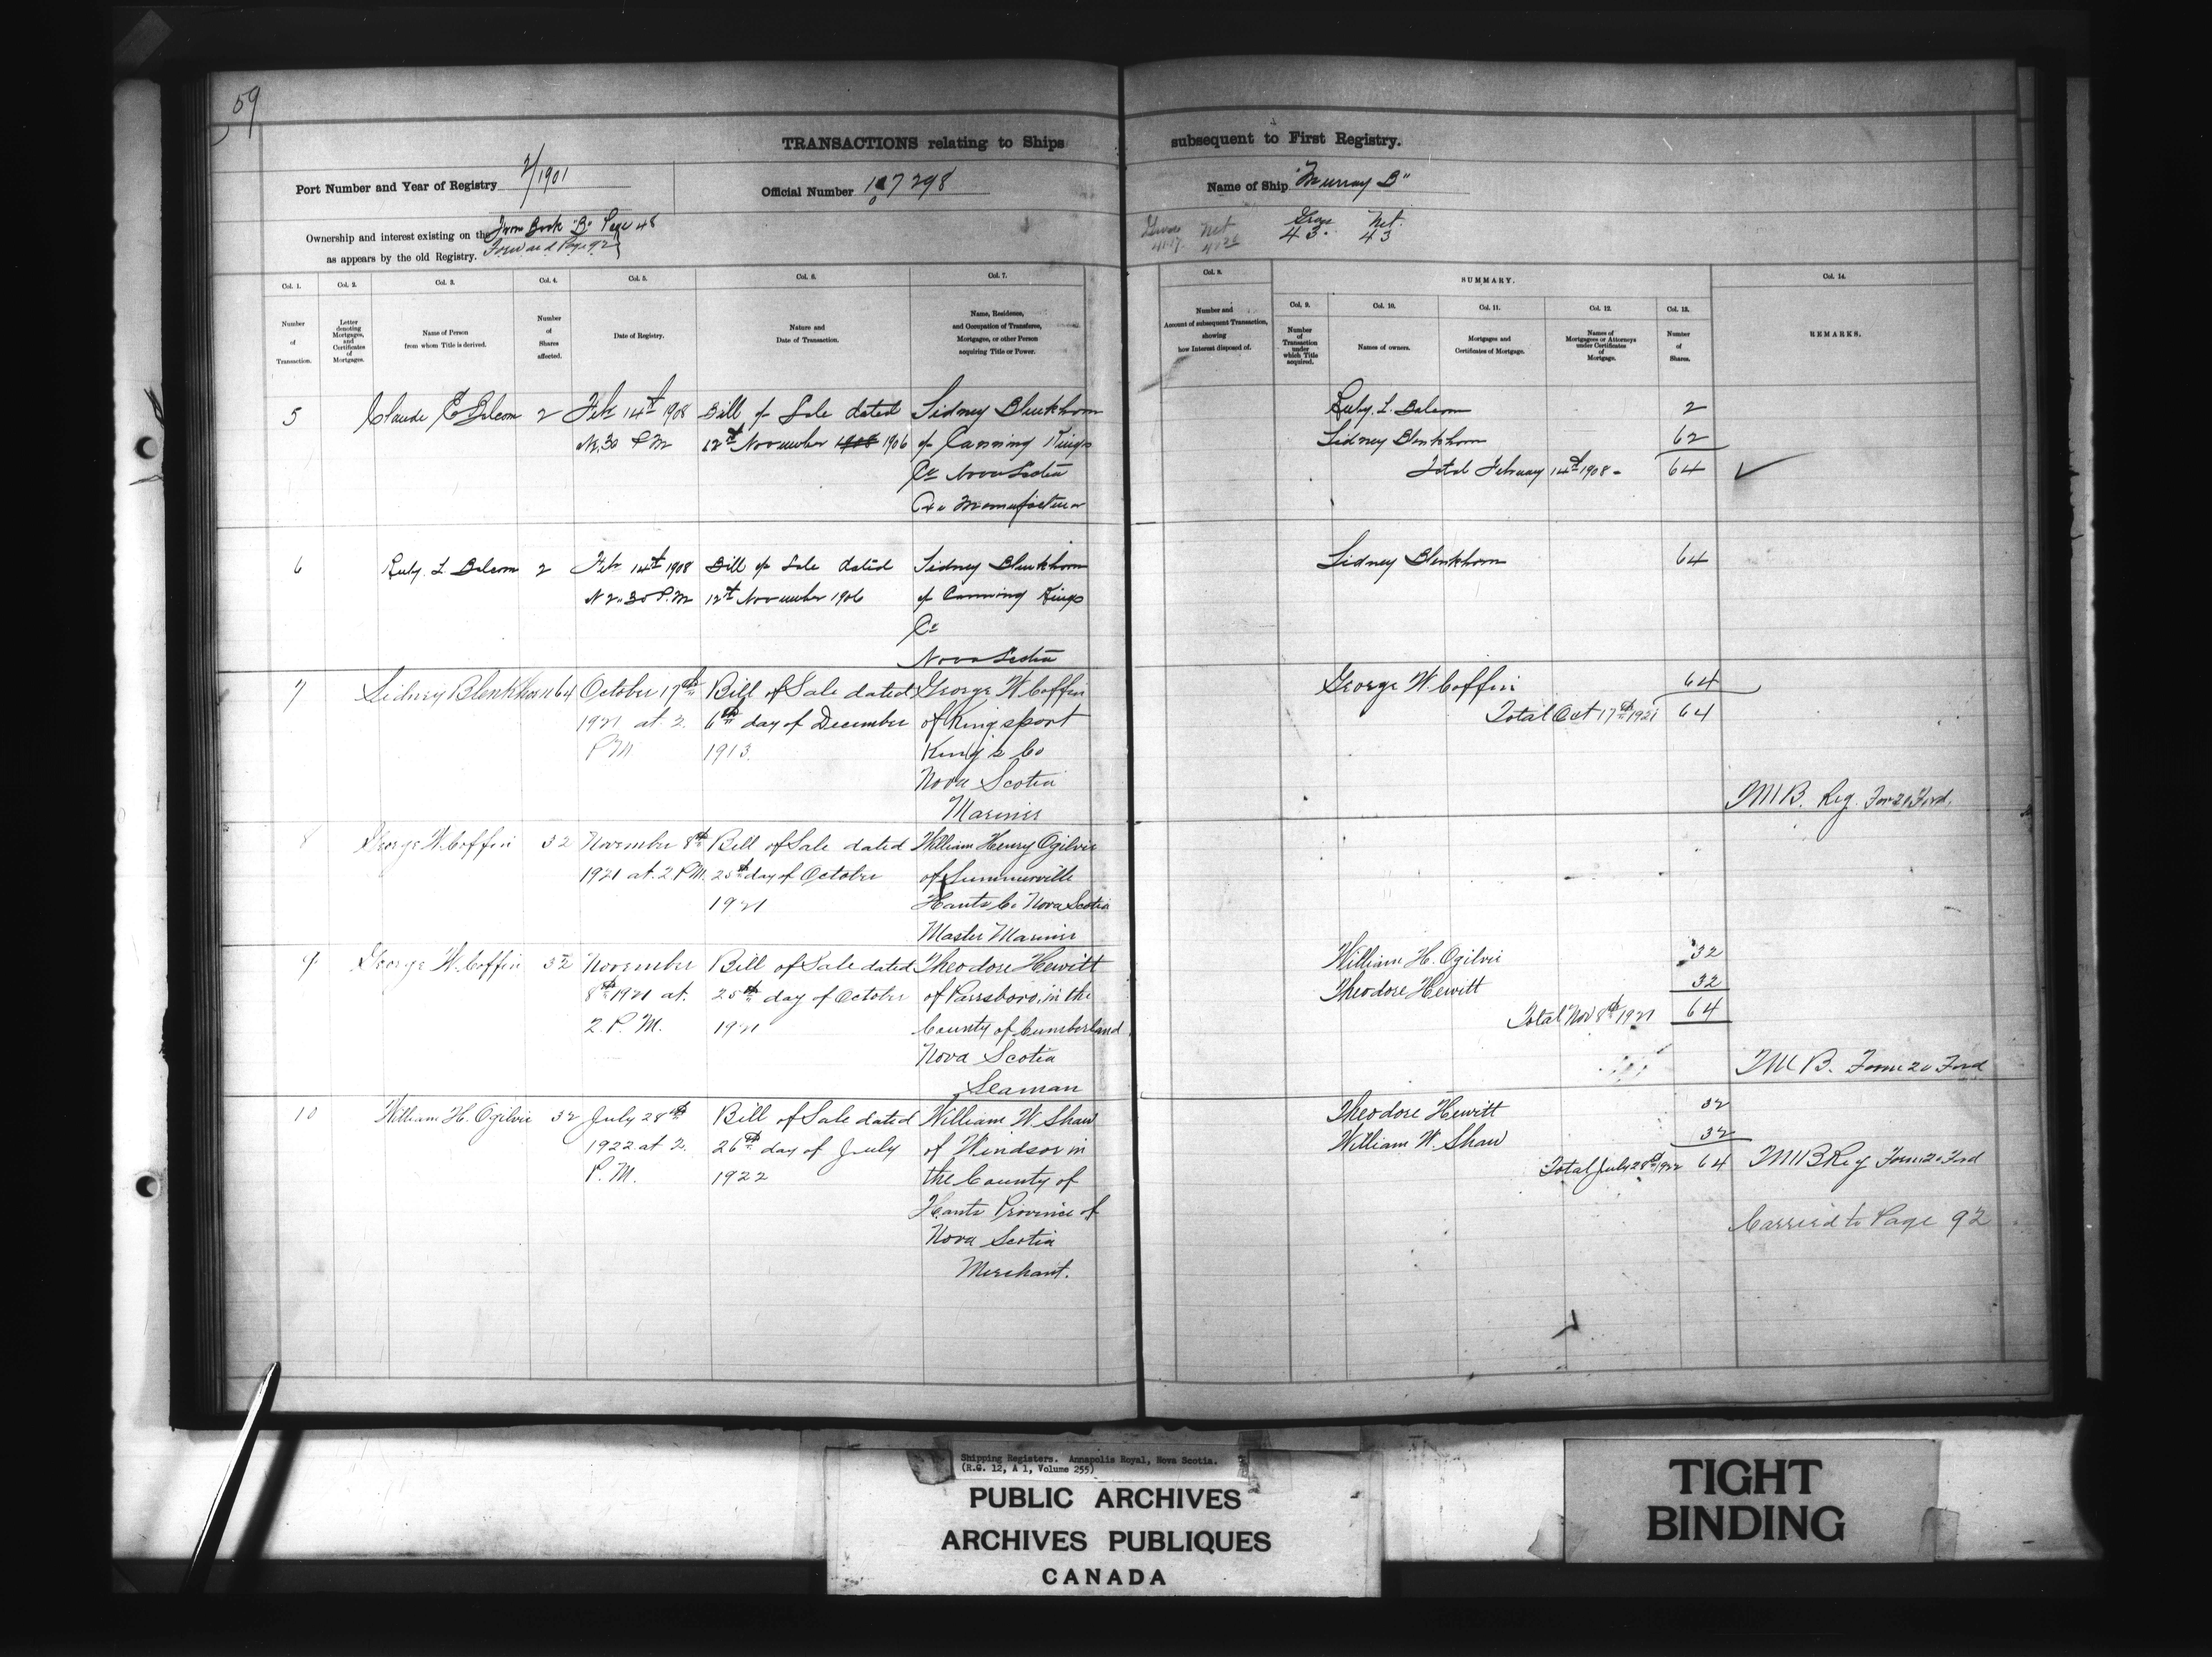 59
TRANSACTIONS relating to Ships subsequent to First Registry.
Port Number and Year of Registry 2/1901
Official Number 107298
Name of Ship "Murray B"
Ownership and interest existing on the From Book "B" Page 48
Forward Page 92
as appears by the old Registry.
Gross Net
Gross Net
43. 43
Col. 1.
Number
of
Transaction.
Col. 2.
Letter
denoting
Mortgages,
and
Certificates
of
Mortgages.
Col. 3.
Name of Person
from whom Title is derived.
Col. 4.
Number
of
Shares
affected.
Col. 5.
Date of Registry.
Col. 6.
Nature and
Date of Transaction.
Col. 7.
Name, Residence,
and Occupation of Transferee,
Mortgagee, or other Person
acquiring Title or Power.
Col. 8.
Number and
Amount of subsequent Transaction,
showing
how Interest disposed of.
SUMMARY.
Col. 9.
Number
of
Transaction
under
which Title
acquired.
Col. 10.
Names of owners.
Col. 11.
Mortgages and
Certificates of Mortgage.
Col. 12.
Names of
Mortgagees or Attorneys
under Certificates
of
Mortgage.
Col. 13.
Number
of
Shares.
Col. 14.
REMARKS.
5 Claude E Balcom 2 Feb 14th 1908 Bill of Sale dated Sidney Blenkhorn
30 P.M 12th November 1908 1906 of Canning Kings
Co Nova Scotia
Manufacturer
Ruby. L. Balcom 2
Sidney Blenkhorn 62
Total February 14th 1908 - 64 ✓
6 Ruby. L Balcom 2 Feb 14th 1908 Bill of Sale dated Sidney Blenkhorn
30 P.M 12th November 1906 of Canning Kings
Co
Nova Scotia
Sidney Blenkhorn 64
7 Sidney Blenkhorn 64 October 17th Bill of Sale dated George W. Coffin
1921 at 2. 6th day of December of Kingsport
PM 1913. King's Co
Nova Scotia
Mariner
George W. Coffin 64
Total Oct 17th 1921 64
M B. Reg. Form 20 Ford.
8 George W. Coffin 32 November 8th Bill of Sale dated William Henry Ogilvie
1921 at 2 PM. 25th day of October of Summerville
1921 Hants Co Nova Scotia
Master Mariner
9 George W. Coffin 32 November Bill of Sale dated Theodore Hewitt
8th 1921 at 25th day of October of Parrsboro, in the
2 P. M. 1921 County of Cumberland
Nova Scotia
Seaman
William H. Ogilvie 32
Theodore Hewitt 32
Total Nov 8th 1921 64
M B. Form 20 Ford
10 William H. Ogilvie 32 July 28th Bill of Sale dated William W. Shaw
1922 at 2 26th day of July of Windsor in
P. M. 1922 the County of
Hants Province of
Nova Scotia
Merchant.
Theodore Hewitt 32
William W. Shaw 32
Total July 28th 1922 64 M B Reg Form 20 Ford
Carried to Page 92
Shipping Registers. Annapolis Royal, Nova Scotia.
(R.G. 12, A 1, Volume 255)
PUBLIC ARCHIVES
ARCHIVES PUBLIQUES
CANADA
TIGHT
BINDING